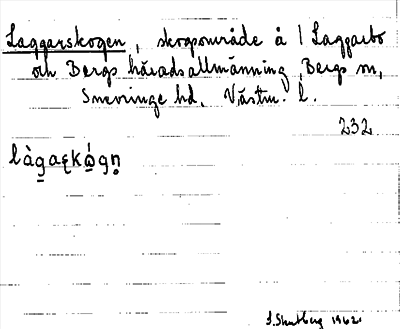 Laggarskogen, skogsområde å 1 Laggarbo
och Bergs häradsallmänning, Bergs sn,
Snevringe hd, Västm. l.
232
làgaʂkǿgn̥
S. Stahlberg 1962